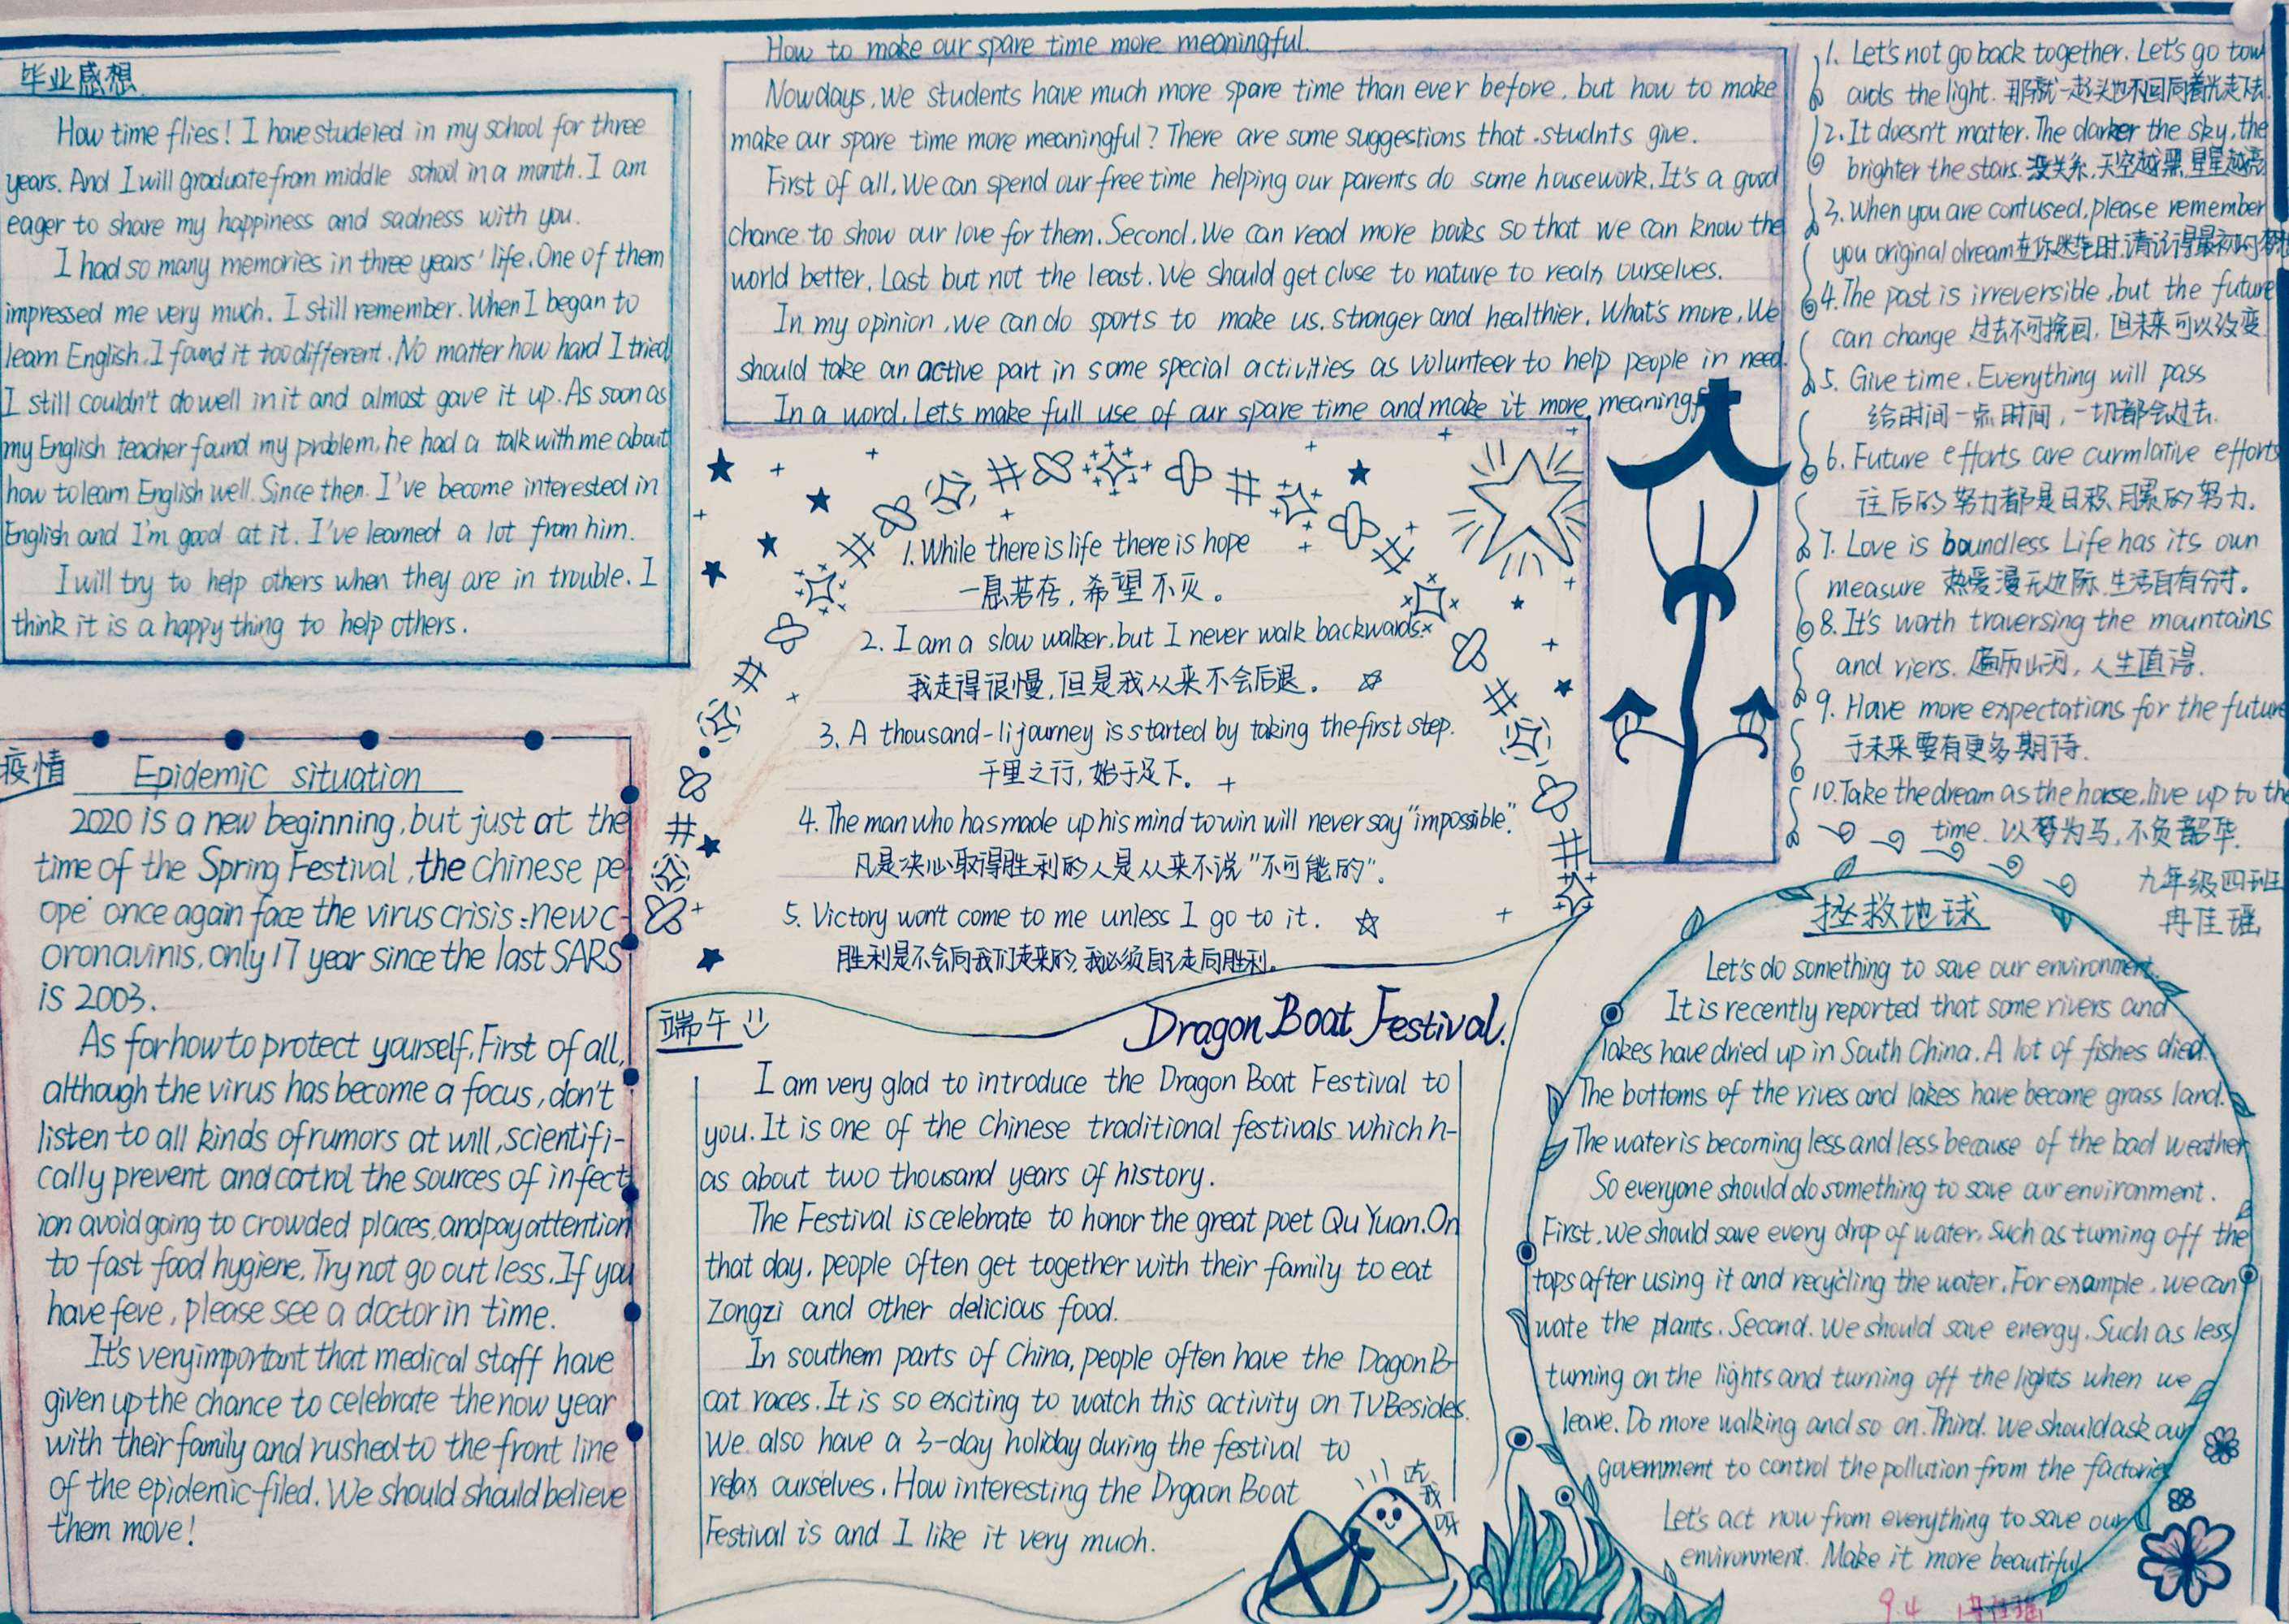 毕业感想
How time flies! I have studeied in my school for three
years. And I will graduate from middle school in a month. I am
eager to share my happiness and sadness with you.
I had so many memories in three years' life. One of them
impressed me very much. I still remember. When I began to
learn English. I found it too different. No matter how hard I tried
I still couldn't do well in it and almost gave it up. As soon as
my English teacher found my problem, he had a talk with me about
how to learn English well. Since then. I've become interested in
English and I'm good at it. I've learned a lot from him.
I will try to help others when they are in trouble. I
think it is a happy thing to help others.
疫情 Epidemic situation
2020 is a new beginning, but just at the
time of the Spring Festival, the Chinese pe-
ope once again face the virus crisis: new c-
oronavinis, only 17 year since the last SARS
is 2003.
As for how to protect yourself. First of all,
although the virus has become a focus, don't
listen to all kinds of rumors at will, scientifi-
cally prevent and cotrol the sources of infect
ion avoid going to crowded places, and pay attention
to fast food hygiene. Try not go out less. If you
have feve, please see a doctor in time.
It's very important that medical staff have
given up the chance to celebrate the now year
with their family and rushed to the front line
of the epidemic filed. We should should believe
them move!
How to make our spare time more meaningful.
Nowdays, we students have much more spare time than ever before, but how to make
make our spare time more meaningful? There are some suggestions that studnts give.
First of all, We can spend our free time helping our parents do some housework. It's a good
chance to show our love for them. Second, We can read more books so that we can know the
world better. Last but not the least. We should get close to nature to ourselves.
In my opinion, we can do sports to make us. stronger and healthier. What's more, We
should take an active part in some special activities as volunteer to help people in need.
In a word, Let's make full use of our spare time and make it more
1. While there is life there is hope
一息若存，希望不灭。
2. I am a slow walker, but I never walk backwards.
我走得很慢，但是我从来不会后退。
3. A thousand-li journey is started by taking the first step.
千里之行，始于足下。
4. The man who has made up his mind to win will never say "impossible".
凡是决心取得胜利的人是从来不说"不可能的"。
5. Victory won't come to me unless I go to it.
胜利是不会向我们走来的，我必须自己走向胜利。
端午 Dragon Boat Festival.
I am very glad to introduce the Dragon Boat Festival to
you. It is one of the Chinese traditional festivals which h-
as about two thousand years of history.
The Festival is celebrate to honor the great poet Qu Yuan. On
that day, people often get together with their family to eat
Zongzi and other delicious food.
In southem parts of China, people often have the Dagon B-
oat races. It is so exciting to watch this activity on TV Besides.
We also have a 3-day holiday during the festival to
relax ourselves. How interesting the Drgaon Boat
Festival is and I like it very much.
1. Let's not go back together. Let's go tow
ards the light. 那就一起头也不回向着光走下去.
2. It doesn't matter. The darker the sky, the
brighter the stars. 没关系，天空越黑，星星越亮
3. When you are contused, please remember
you original dream 在你迷茫时，请记得最初的梦想
4. The past is irreversible, but the future
can change 过去不可挽回，但未来可以改变
5. Give time. Everything will pass
给时间一点时间，一切都会过去.
6. Future efforts are curmlative efforts
往后的努力都是日积月累的努力.
7. Love is boundless Life has its own
measure 热爱漫无边际，生活自有分寸。
8. It's worth traversing the mountains
and riers. 遍历山河，人生值得.
9. Have more expectations for the future
于未来要有更多期待.
10. Take the dream as the horse, live up to the
time. 以梦为马，不负韶华.
九年级四班
冉佳瑶
拯救地球
Let's do something to save our environment.
It is recently reported that some rivers and
lakes have dried up in South China. A lot of fishes died.
The bottoms of the rives and lakes have become grass land.
The water is becoming less and less because of the bad weather
So everyone should do something to save our environment.
First. We should save every drop of water. Such as turning off the
taps after using it and recycling the water. For example, we can
wate the plants. Second. We should save energy. Such as less
turning on the lights and turning off the lights when we
leave. Do more walking and so on. Third. We should ask our
government to control the pollution from the factories
Let's act now from everything to save our
environment. Make it more beautiful.
9.4